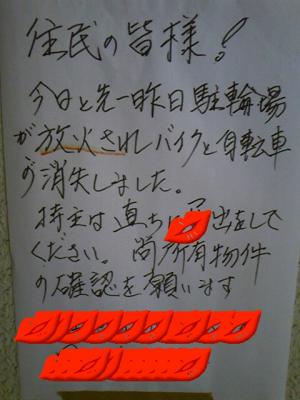 住民の皆様!
今日と先一昨日駐輪場
が放火されバイクと自転車
が消失しました。
持主は直ちに出をして
ください。尚所有物件
の確認を願います